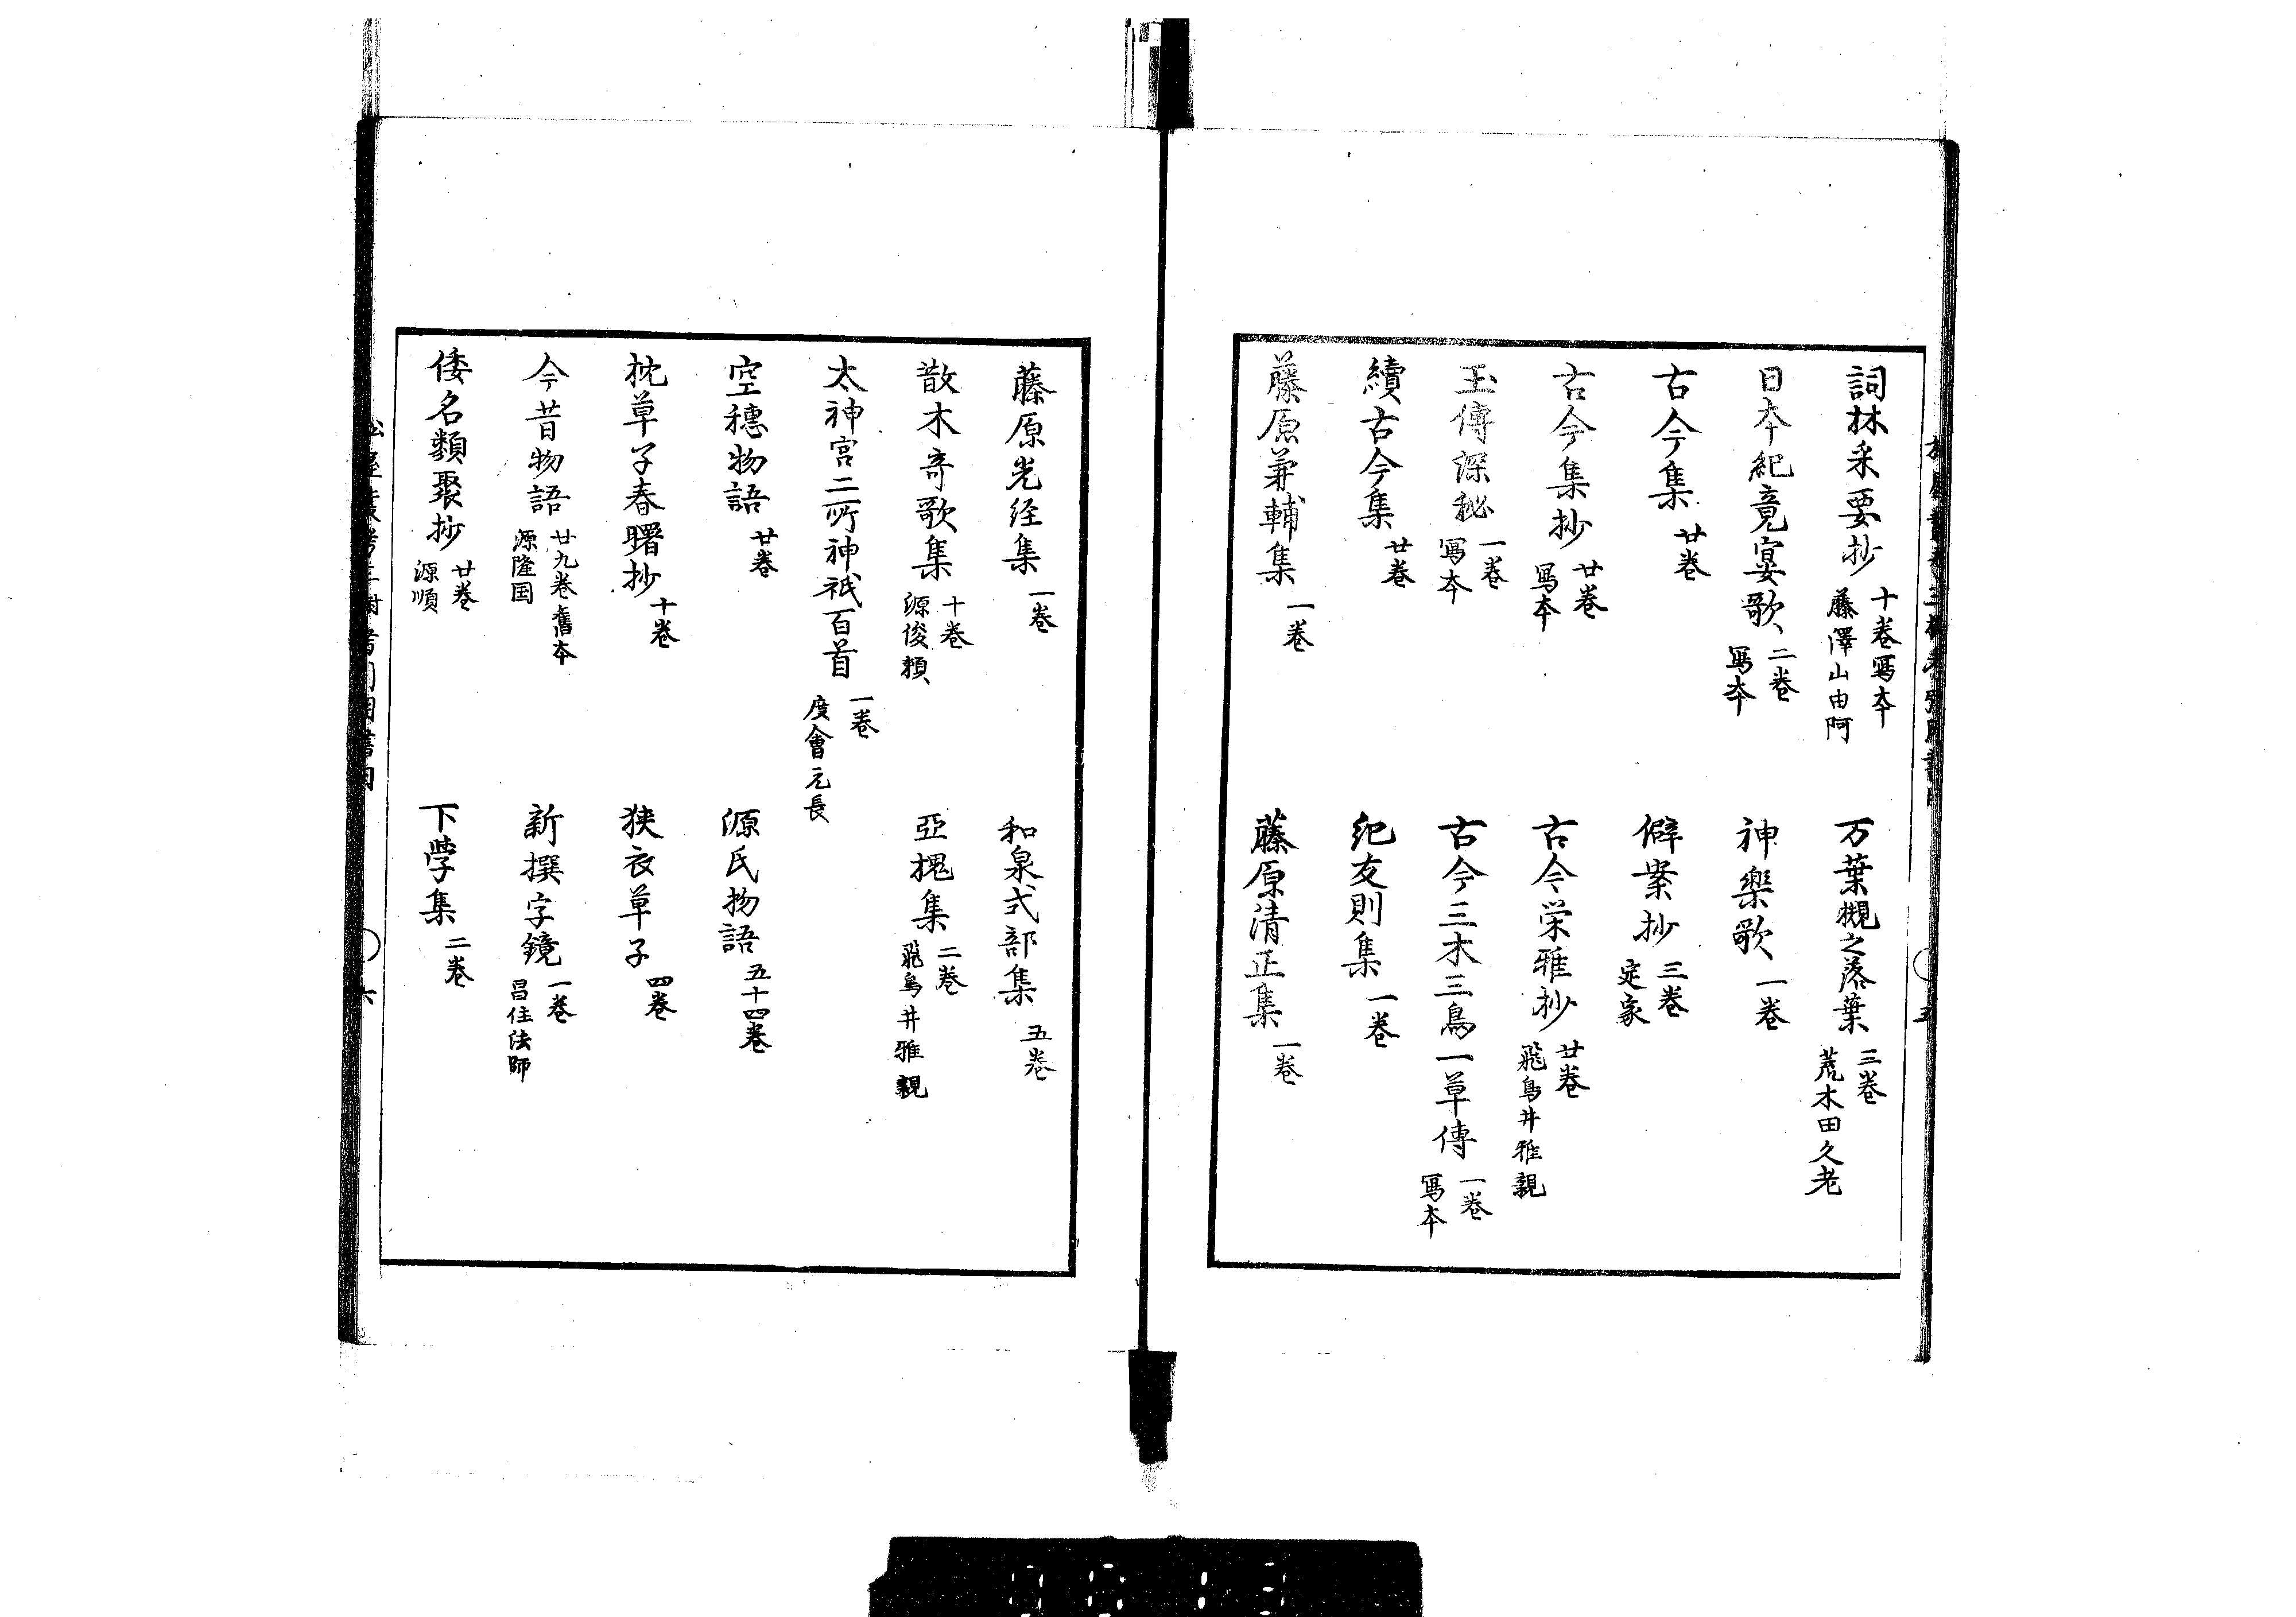 詞林采要抄 十巻寫本 藤澤山由阿 万葉槻之落葉 三巻 荒木田久老
日本紀竟宴歌 二巻 寫本 神樂歌 一巻
古今集 廿巻 僻案抄 三巻 定家
古今集抄 廿巻 寫本 古今栄雅抄 廿巻 飛鳥井雅親
玉傳深秘 一巻 寫本 古今三木三鳥一草傳 一巻 寫本
續古今集 廿巻 紀友則集 一巻
藤原兼輔集 一巻 藤原清正集 一巻
藤原光経集 一巻 和泉式部集 五巻
散木寄歌集 十巻 源俊頼 亞槐集 二巻 飛鳥井雅親
太神宮二所神祇百首 一巻 度會元長
空穗物語 廿巻 源氏物語 五十四巻
枕草子春曙抄 十巻 狭衣草子 四巻
今昔物語 廿九巻舊本 源隆国 新撰字鏡 一巻 昌住法師
倭名類聚抄 廿巻 源順 下学集 二巻
六